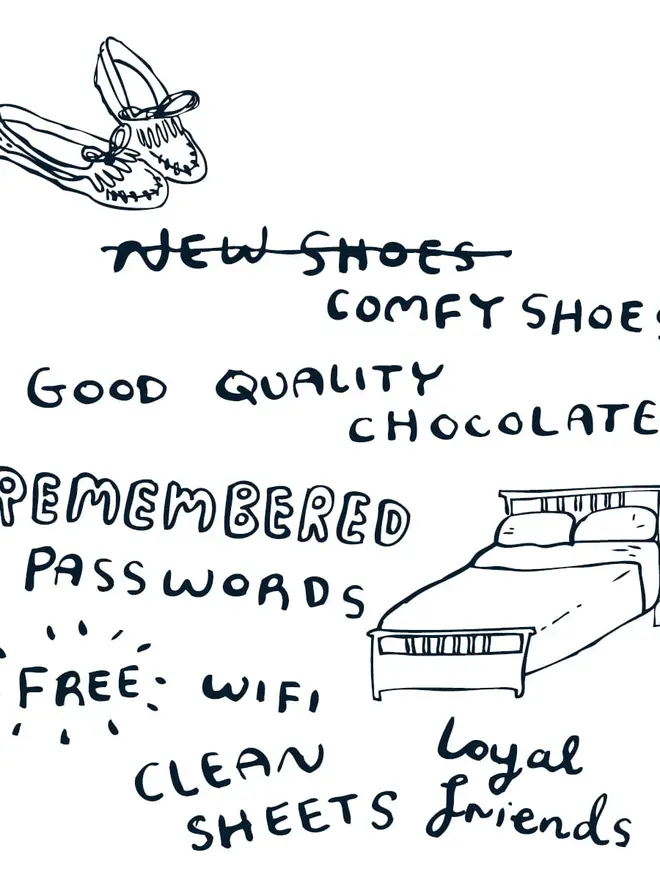 NEW SHOES
COMFY SHOES
GOOD QUALITY
CHOCOLATE
REMEMBERED
PASSWORDS
FREE WIFI
CLEAN
SHEETS
Loyal
friends